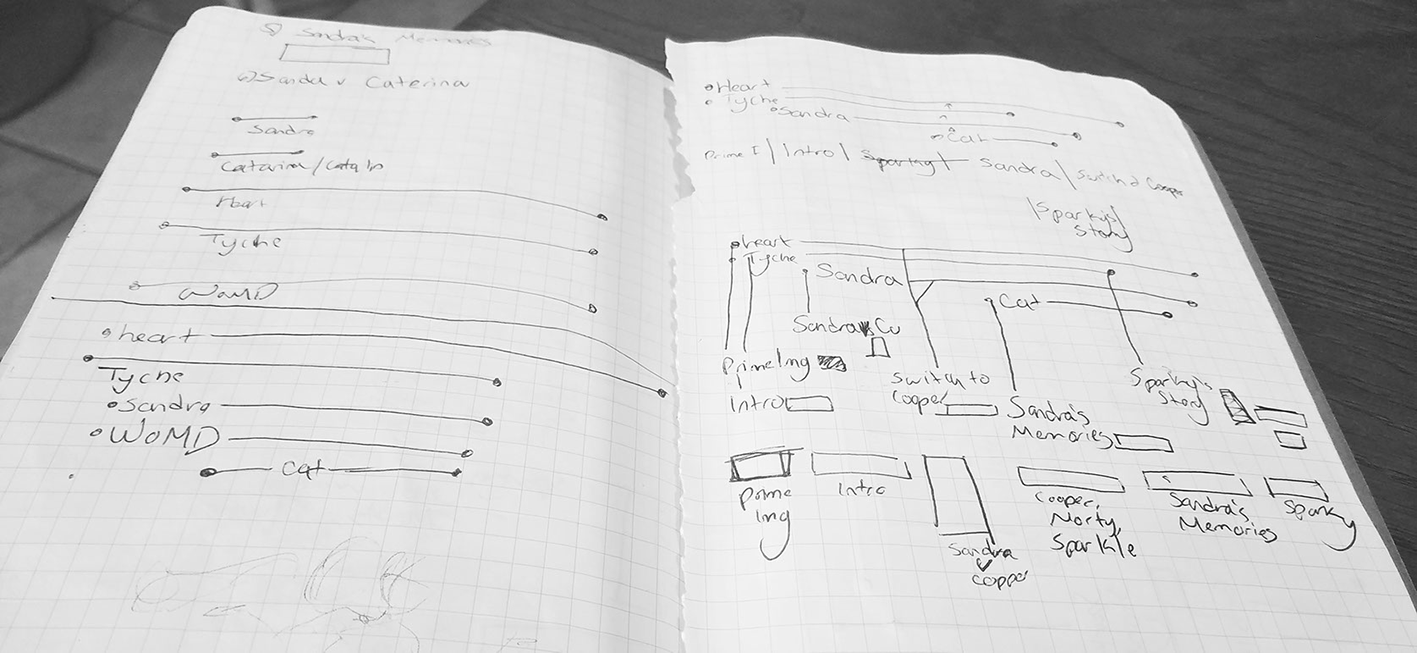 Sandra's Memories
Sanda v Caterina
Sandra
Catarina/
Heart
Tyche
WoMD
heart
Tyche
Sandra
WoMD
Cat
Heart
Tyche
Sandra
Cat
Prime I | Intro | Sparing | Sandra | Switch 2 Cooper
|Sparky's|
Story
heart
Tyche
Sandra
Cat
Sandra v Cu
PrimeIng
Intro
Switch to
Cooper
Sandra's
Memories
Sparky's
Story
Prime
Ing
Intro
Sandra
v
Copper
Cooper,
Morty,
Sparkle
Sandra's
Memories
Sparky